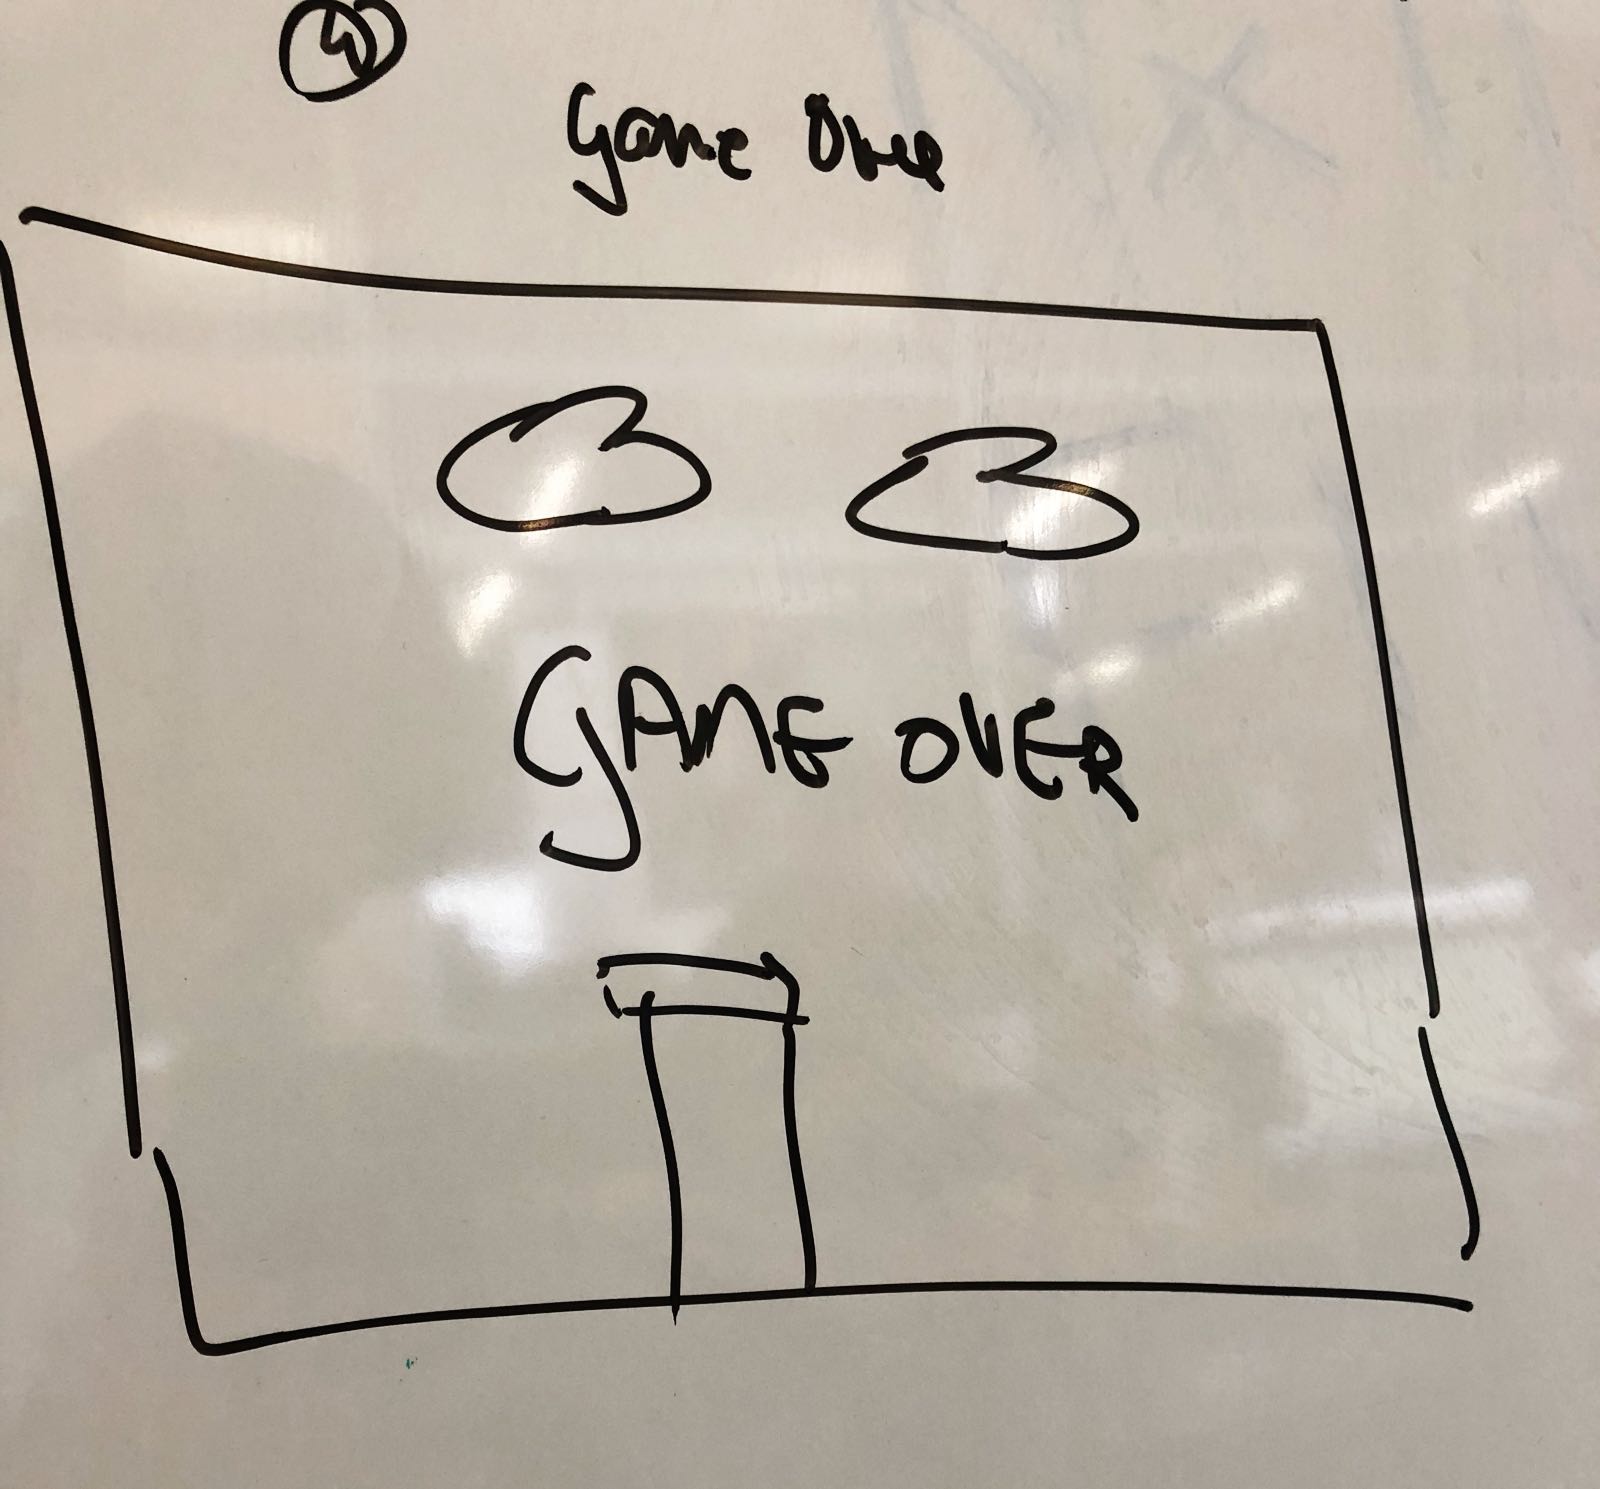 4
Game Over
GAME OVER